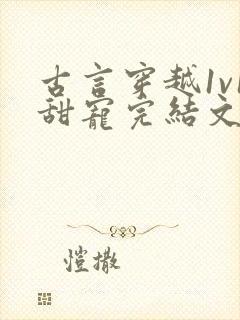 古言穿越1v1
甜宠完结文
愷撒